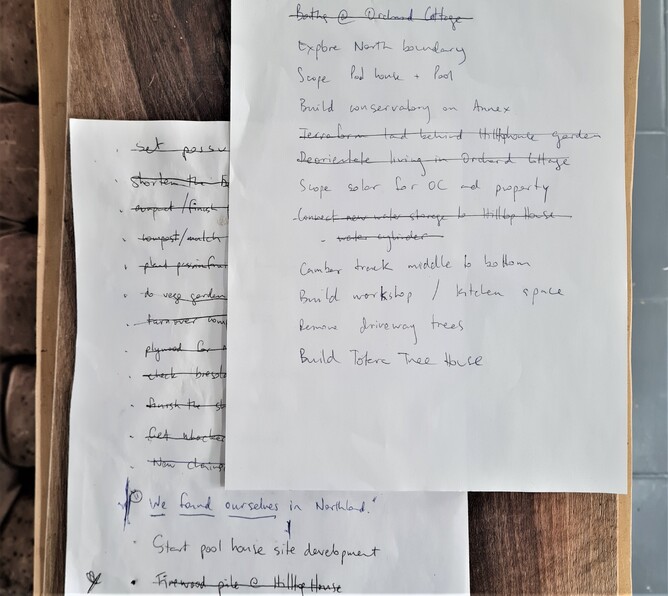 Baths @ Orchard Cottage
Explore North boundary
Scope Pool house + Pool
Build conservatory on Annex
Terraform land behind Hilltophouse garden
Reorientate living in Orchard Cottage
Scope solar for OC and property
Connect new water storage to Hilltop House
- water cylinder
Camber track middle to bottom
Build workshop / kitchen space
Remove driveway trees
Build Totara Tree House
. Set possu
. shorten the
. /finish
. compost/mulch
. plant passionfru
. do vege garden
. turnover
. plywood for
. check
. finish the
. Get
. New chains
We found ourselves in Northland."
. Start pool house site development
• Firewood pile @ Hilltop House